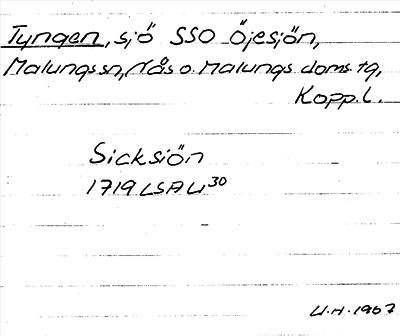 Tyngen, sjö SSO Öjesjön,
Malungs sn, Nås o. Malungs doms. tg,
Kopp. l.
Sicksiön
1719 LSA U30
U.H. 1967